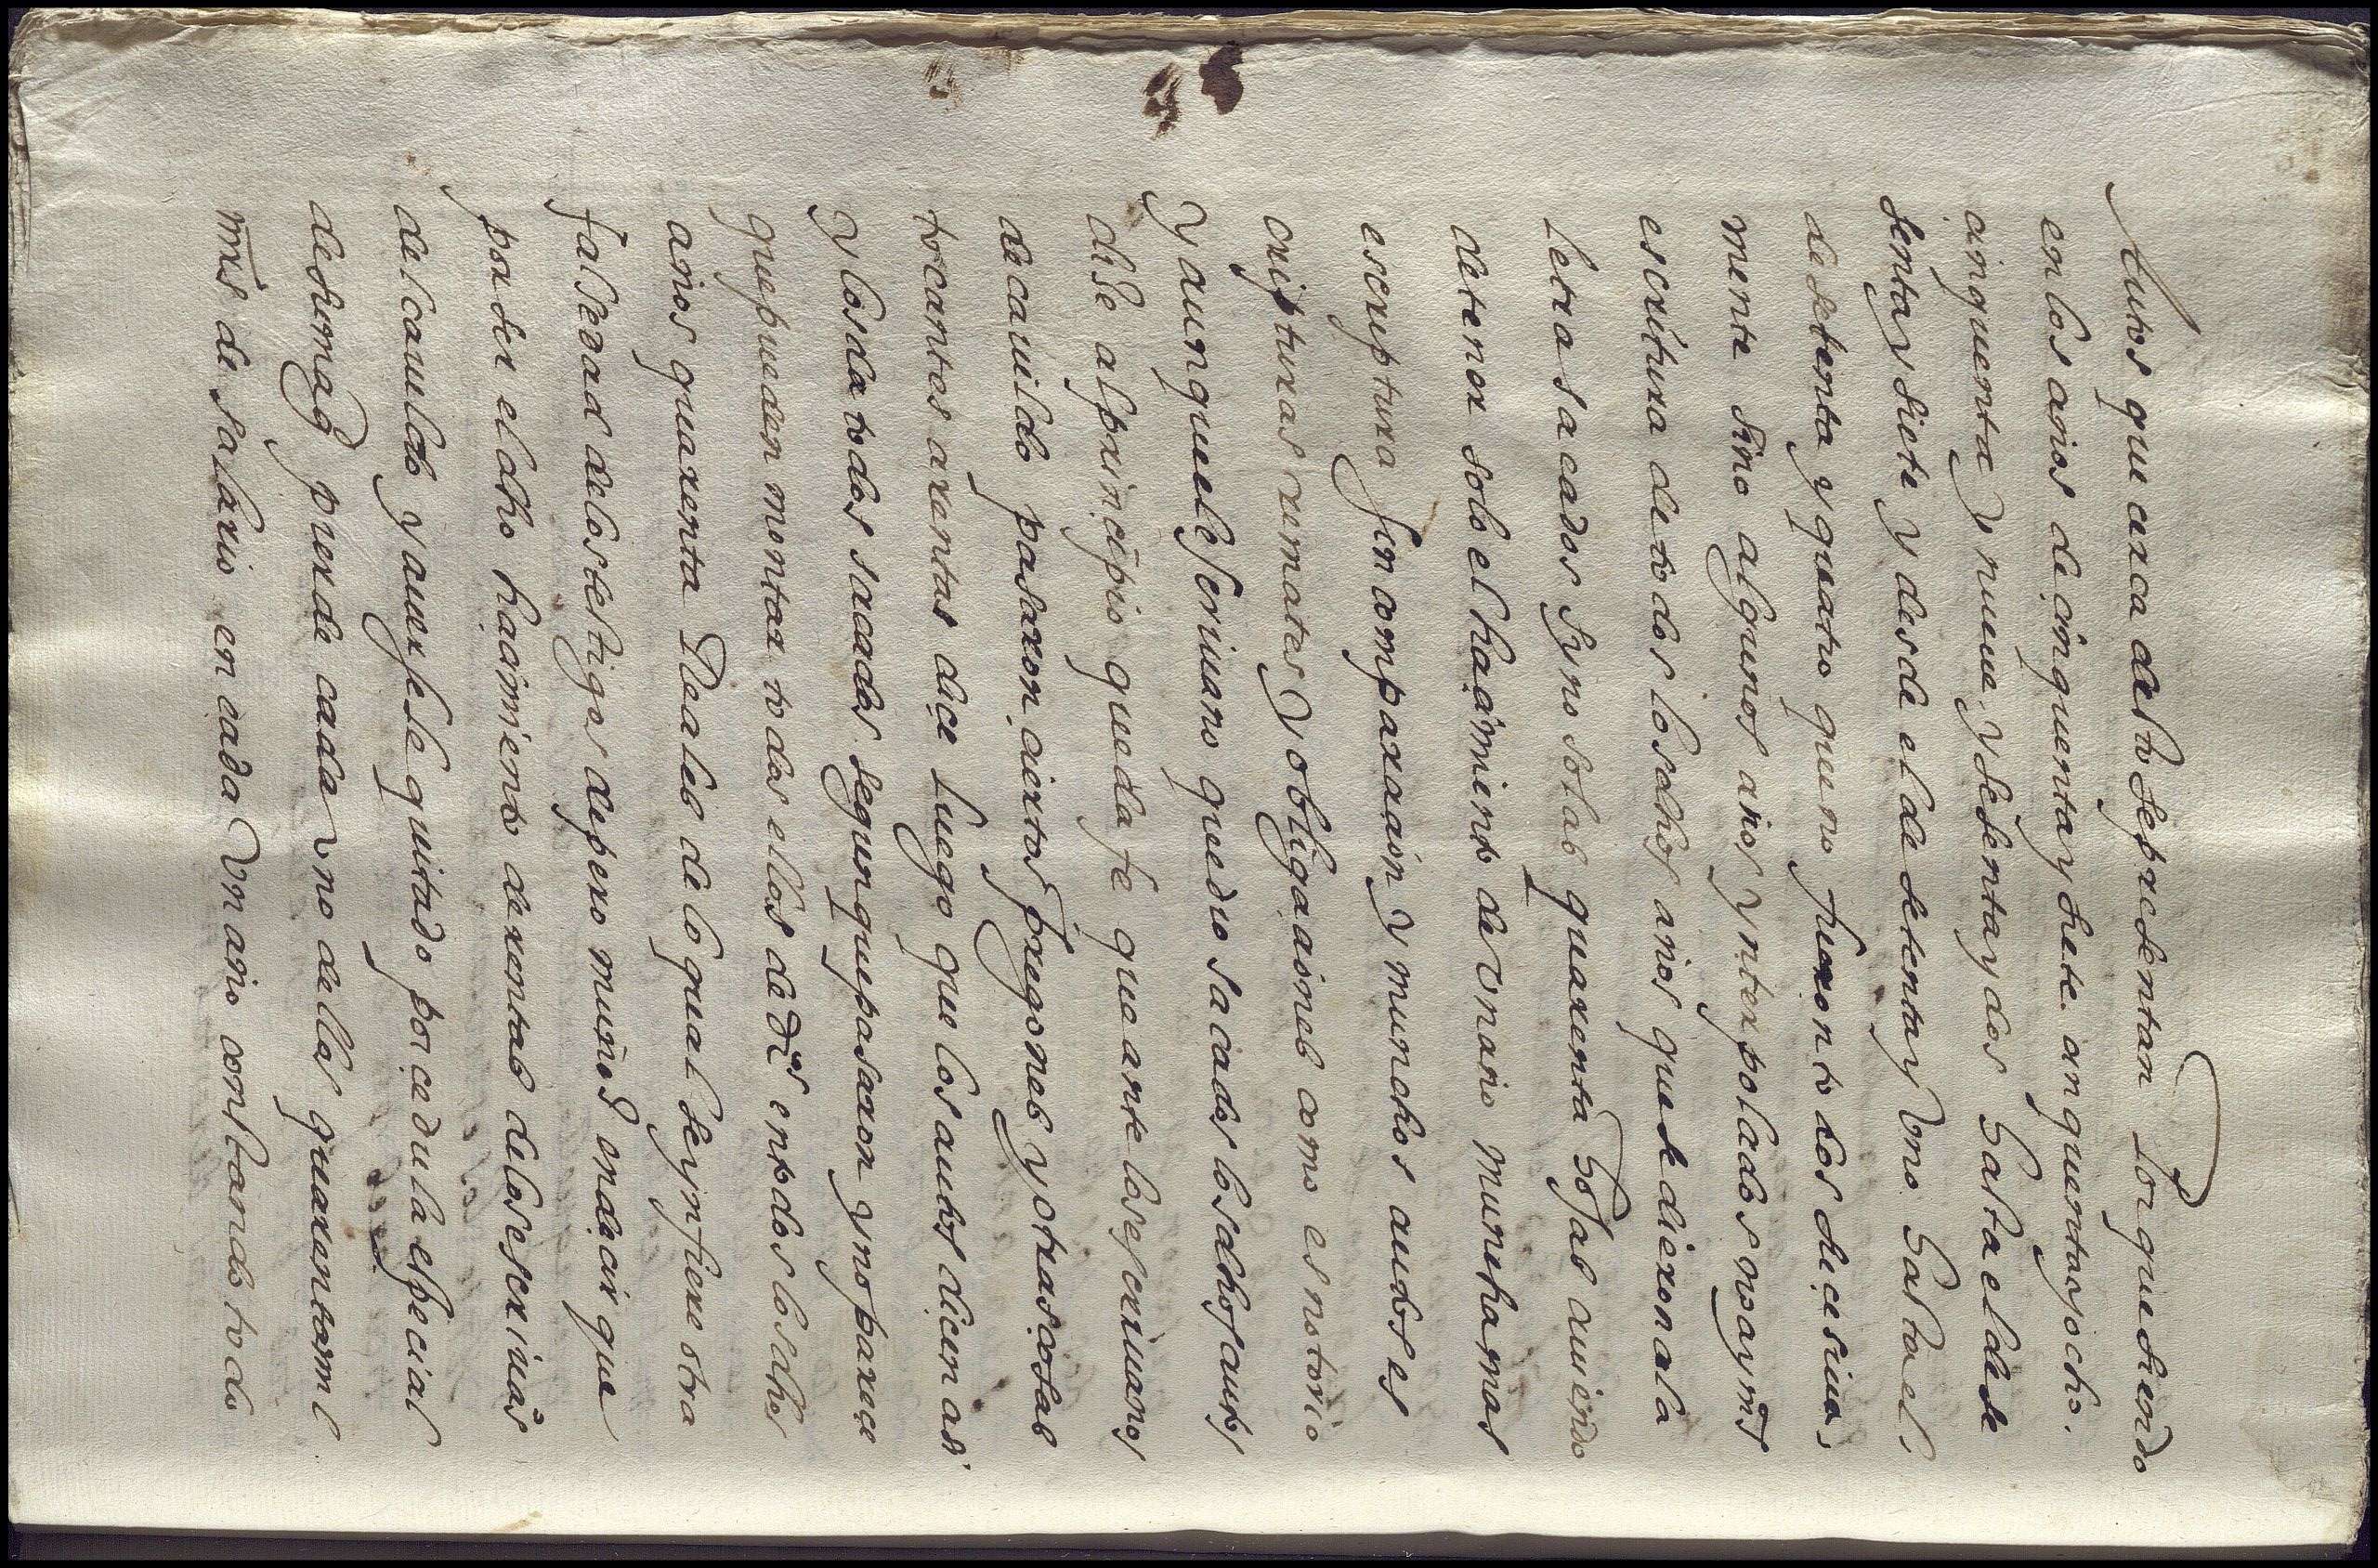 Autos que acerca desto se presentan Porque siendo
en los años de cinquenta y siete cinquenta y ocho.
cinquenta y nueue y sesenta y dos hasta el de se
senta y siete y desde el de setenta y vno hasta el.
de setenta y quatro que no fueron todos diez
mente sino algunos años ynterpolados
escritura de todos los dhos años que se dieron a la
letra sacados sy no solas quarenta hojas auiendo
de tener solo el hacimiento de vn año muncha mas
escriptura sin comparacion y munchos autos es
cripturas remates y obligaciones como es notorio
y aunque el escriuano que dio sacados los dhos autos
dise al principio que da fe que ante los escriuanos
de cauildo pasaron ciertos pregones y otras cosas
tocantes a rentas dice luego que los autos dicen asi
y los da todos sacados segun que pasaron y no parece
que pueden montar todas ellos de dros en todos los dhos
años quarenta Reales de lo qual se ynfiere otra
falsedad de los testigos de pero muñoz en decir que
por ser el dho hacimiento de rentas de los escriuaos
del cauildo y auersele quitado por cedula especial
de su mag pierde cada vno dellos quarenta mil
mrs de salario en cada Vn año constando todo